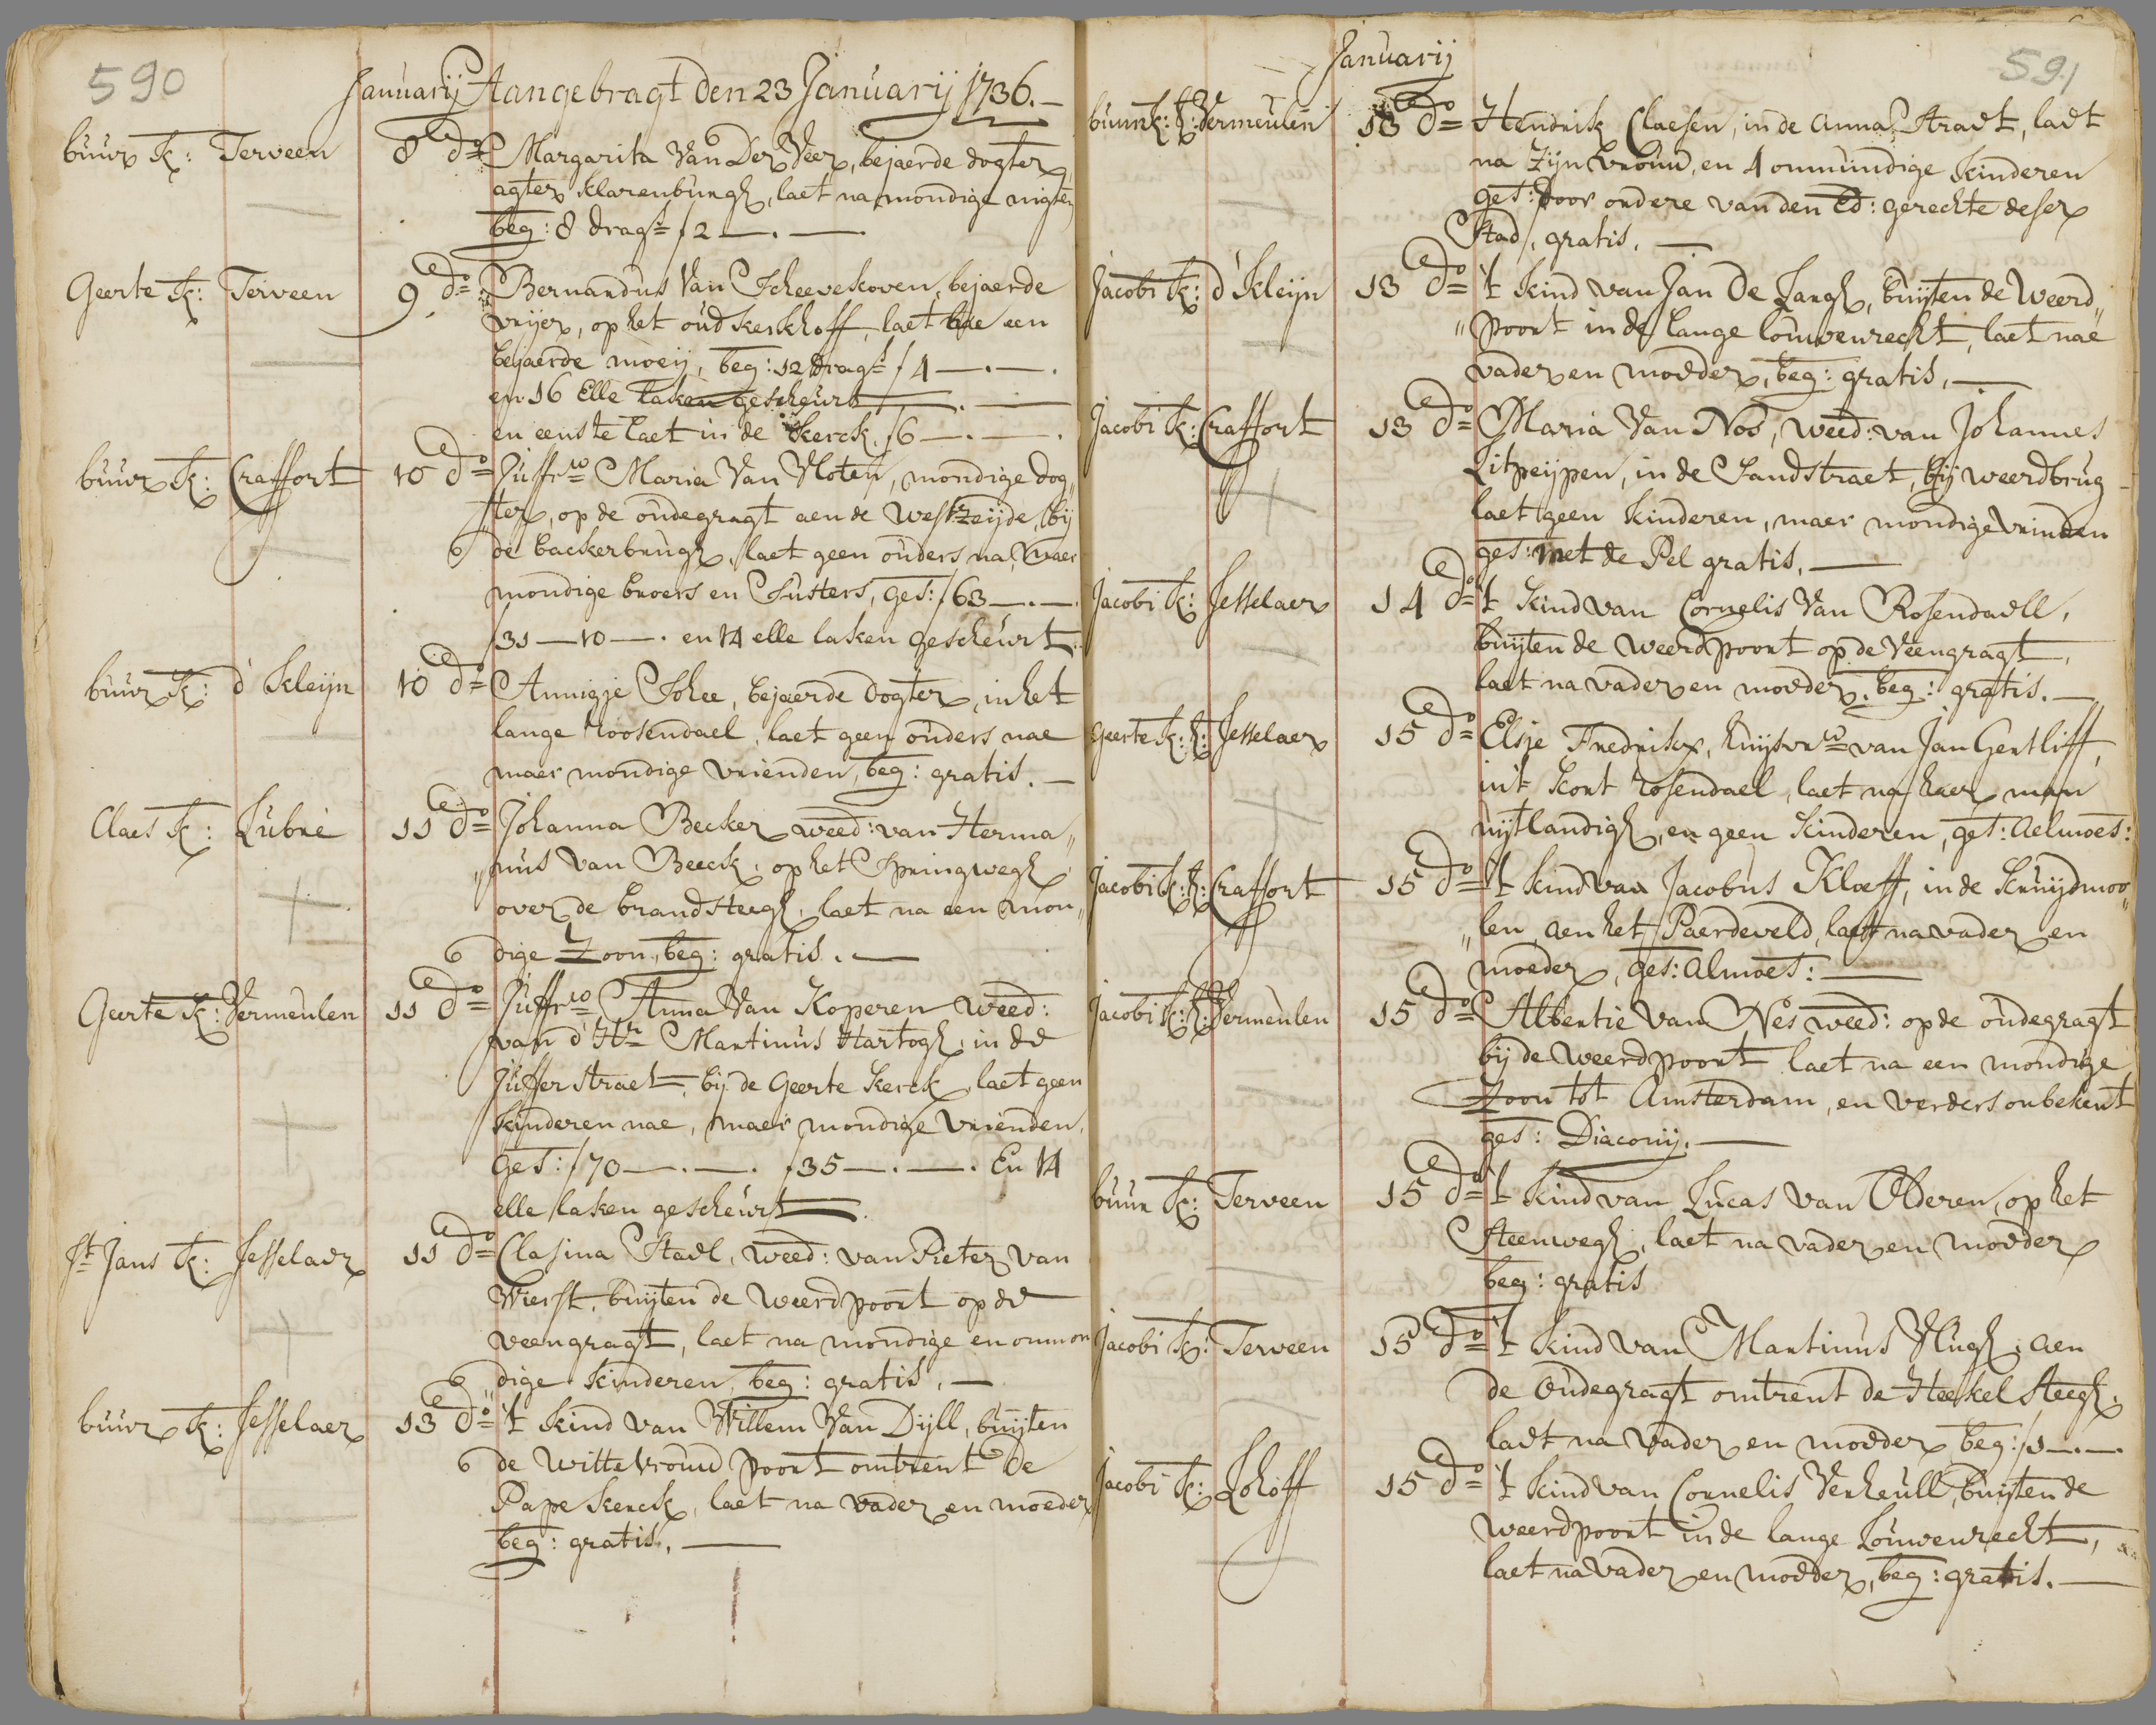 590
Januarij Aangebragt den 23 Januarij 1736.
buur K: Terveen 8e do Margarita Van Der Veer, bejaerde dogter
agter klarenburgh, laet na mondige nigten
beg: 8 drags f 2 —.—
Geerte K: Terveen 9e do Bernardus Van Scheevekoven, bejaerde
vrijer, op het oud kerkhoff, laet nae een
bejaerde moeij, beg: 12 drags f 4 —.—.
en 16 Elle laken gescheurt
en eenste laet in de Kerck, f 6 —.—.
buur K: Craffort 10e do Juffrw Maria Van Vloten, mondige dog„
ter, op de oudegragt aen de Westzeijde, bij
6 de backerbrugh, laet geen ouders na, maer
mondige broers en Susters, ges: f 63 —.—.
f 31 — 10 —. en 14 elle laken gescheurt.
buur K: d' Kleijn 10e do Annigje Schee, bejaerde dogter, in het
lange roosendael, laet geen ouders nae
maer mondige vrienden, beg: gratis. —
Claes K: Lubré 11e do Johanna Becker weed: van Herma„
„nus van Beeck, op het Springwegh
over de brandsteegh, laet na een mon„
6 dige Zoon, beg: gratis. —
Geerte K: Vermeulen 11e do Juffrw Anna Van Koperen weed:
van d' Hr Martinus Hartogh, in de
Jufferstraet, bij de Geerte Kerck, laet geen
kinderen nae, maer mondige vrienden,
Ges: f 70 —.—. f 35 —.—. En 14
elle laken gescheurt
St Jans K: Jesselaer 11e do Clasina Stael, weed: van Pieter van
Wierst, buijten de Weerdpoort op de
veengragt, laet na mondige en onmon
6 dige kinderen, beg: gratis. —
buur K: Jesselaer 13e do 't Kind van Willem Van Dijll, buijten
6 de Wittevrouwpoort omtrent de
Pape Kerck, laet na vader en moeder
beg: gratis. —
591
Januarij
buurk: K: Vermeulen 13e do Hendrik Claesen, in de Anna Straet, laet
na Zijn vrouw, en 4 onmundige kinderen
ges: door ordere van den Ed: gerechte deser
Stad, gratis. —
Jacobi K: d' Kleijn 13e do 't Kind van Jan De Langh, buijten de Weerd„
„poort in de lange louwenrecht, laet nae
vader en moeder, beg: gratis. —
Jacobi K: Craffort 13e do Maria Van Nos, weed: van Johannes
Litpeijpen, in de Sandstraet, bij weerdbrug
laet geen kinderen, maer mondige vrinden
ges: met de Pel gratis. —
Jacobi K: Jesselaer 14e do 't Kind van Cornelis Van Rosendaell,
buijten de weerdpoort op de Veengragt,
laet na vader en moeder, beg: gratis. —
Geerte K: K: Jesselaer 15e do Elsje Fredrikx, huijsvrw van Jan Gertliff,
in't kort rosendael, laet na haer man
uijtlandigh, en geen kinderen, ges: aelmoes:
Jacobi K: K: Craffort 15e do 't Kind van Jacobus Kloeff, in de Kruijdmoo„
„len, aen het Paerdeveld, laet na vader en
moeder, ges: almoes: —
Jacobi K: K: Vermeulen 15e do Albertie Van Nes weed: op de oudegragt
bij de weerdpoort laet na een mondige
Zoon tot Amsterdam, en verders onbekent
ges: Diaconij. —
buur K: Terveen 15e do 't Kind van Lucas Van Olderen, op het
Steenwegh, laet na vader en moeder
beg: gratis
Jacobi K: Terveen 15e do 't Kind van Martinus Vlugh, aen
de Oudegragt omtrent de Heekelsteegh,
laet na vader en moeder beg: f 1 —.—.
Jacobi K: Lohoff 15e do 't Kind van Cornelis Verheull, buijten de
weerdpoort in de lange Louwenrecht,
laet na vader en moeder, beg: gratis. —